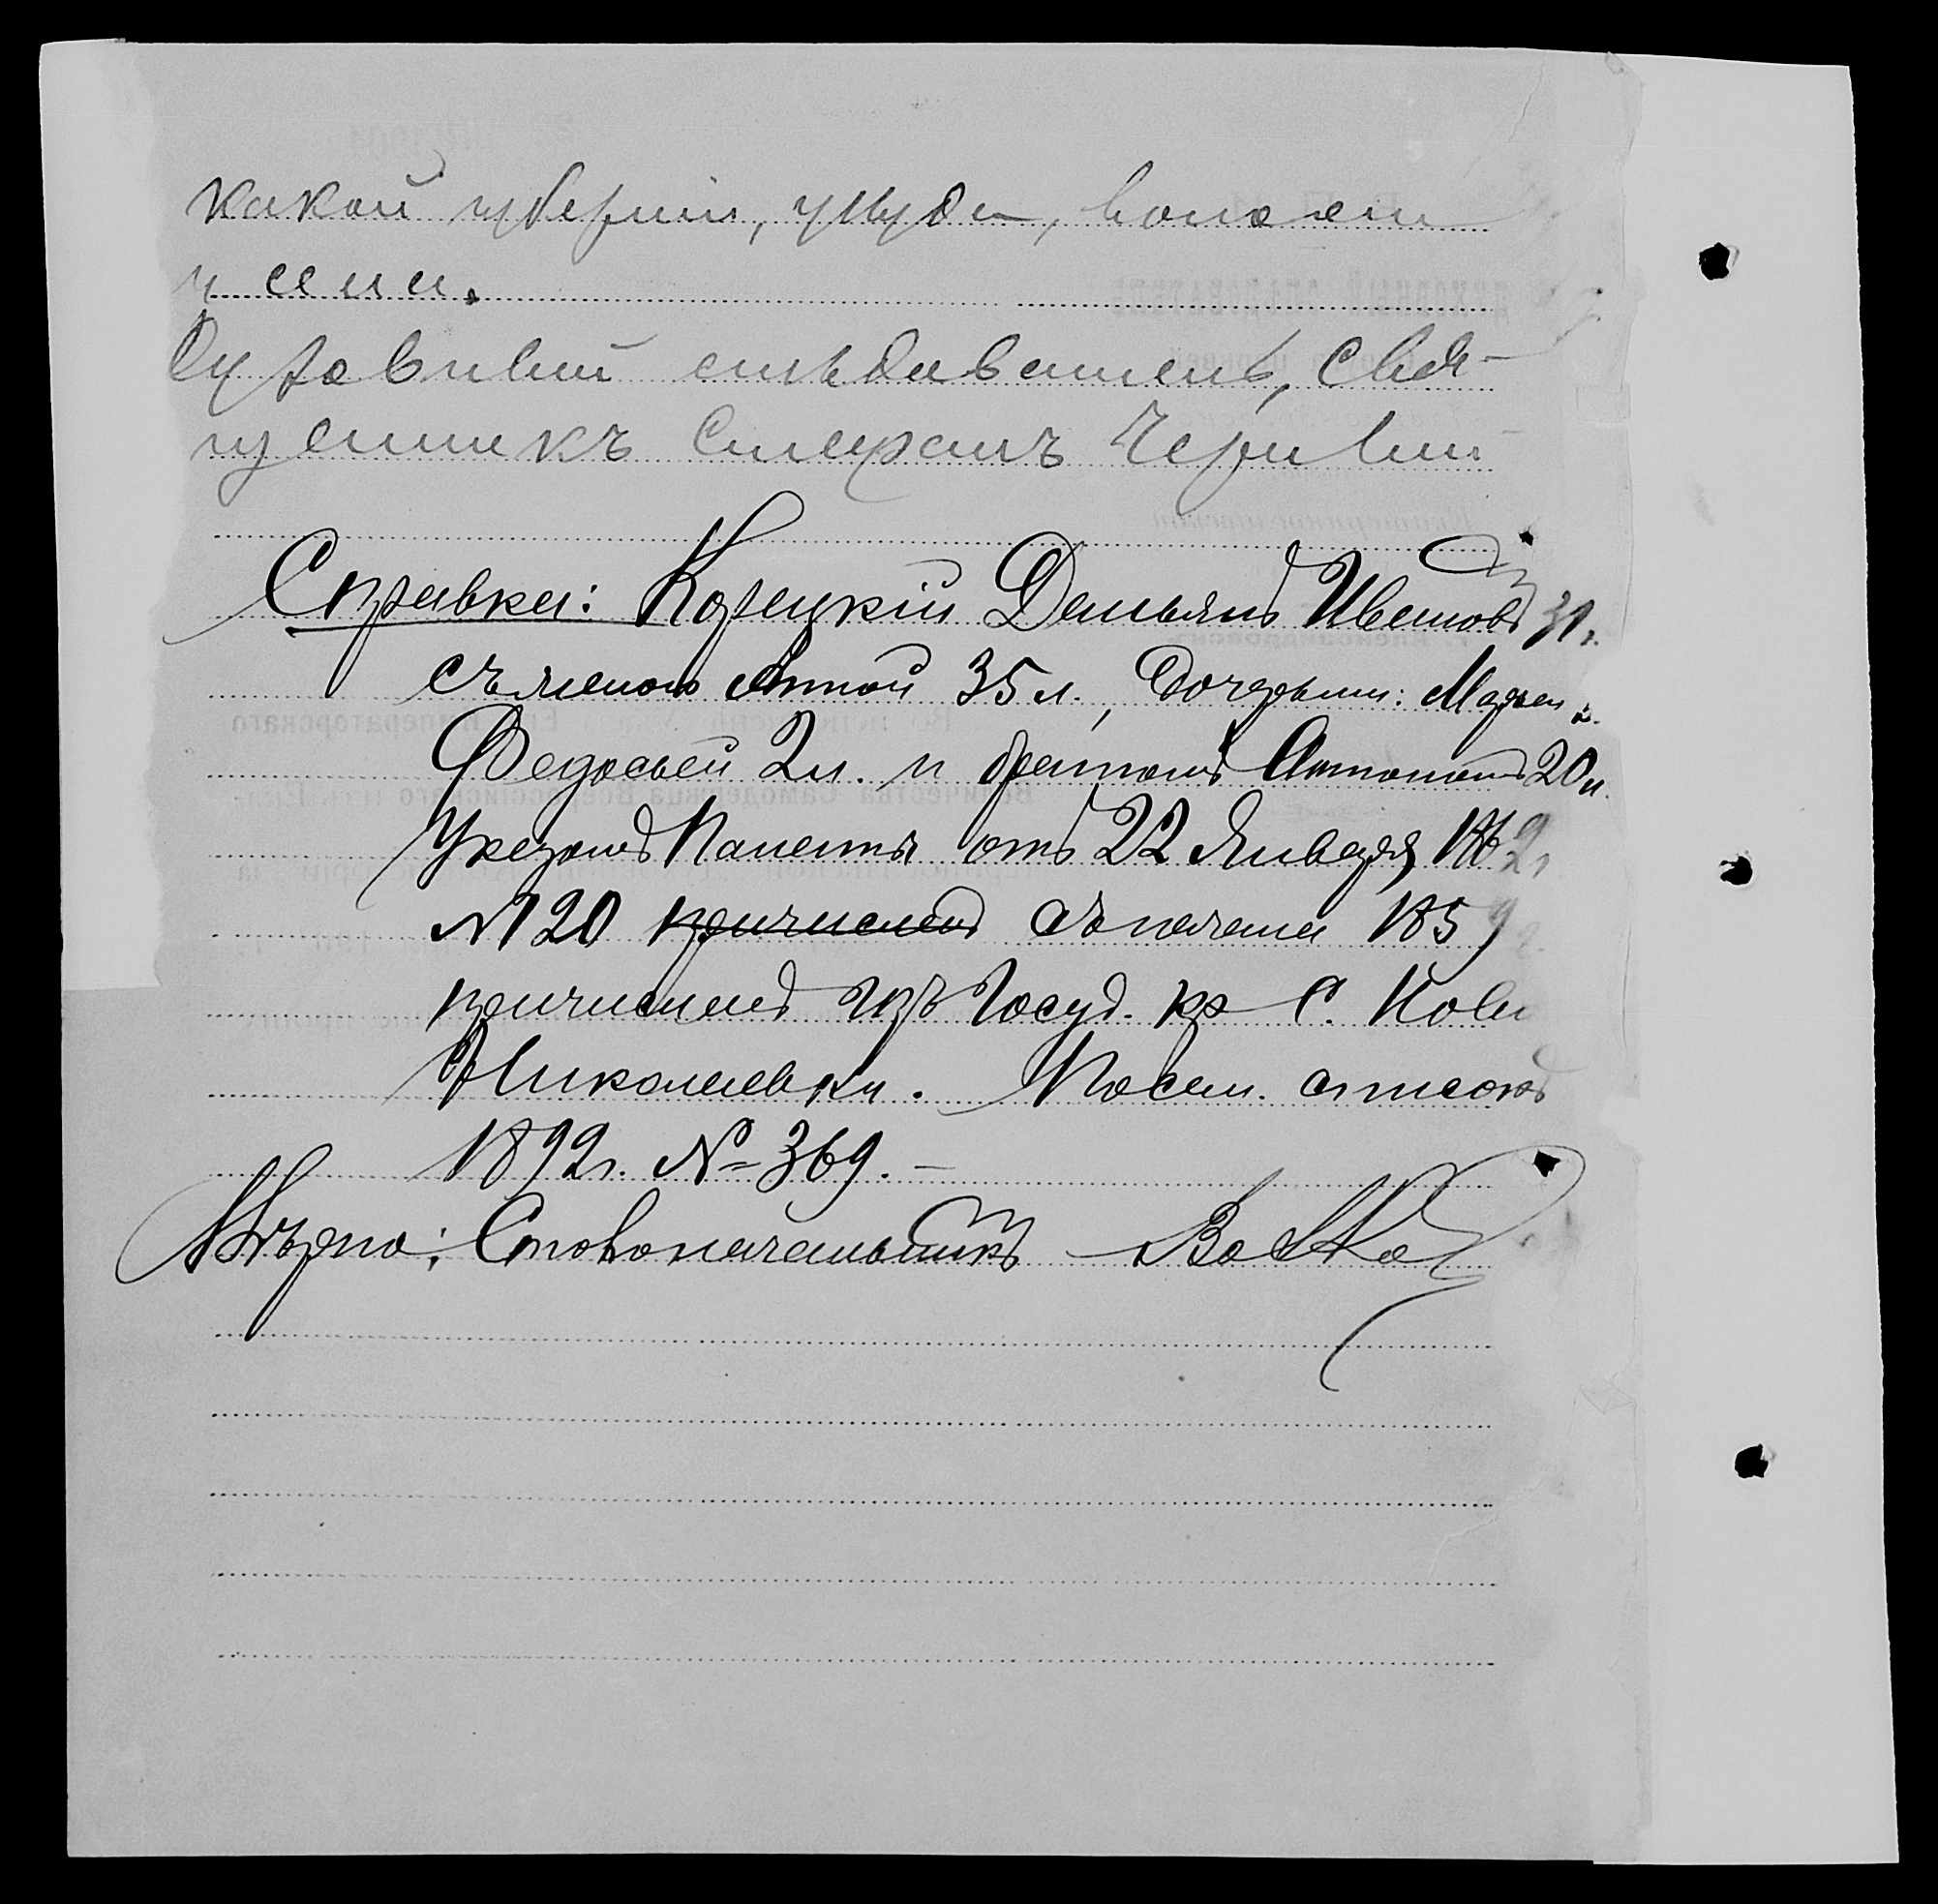 какой губерніи, уѣзда, волости
и села.
Духовный слѣдователь, Свя-
щенникъ Стефанъ Черн
Справка: Корецкій Демьянъ Ивановъ 31 г.
съ женою Анной 35 л., дочерьми: Марьей
Федосьей 2 л. и братомъ Антономъ 20 л.
Указомъ Палаты отъ 22 Января 1862 г
№ 120 причисленъ съ начала 1859 г.
причисленъ изъ Госуд. кр С. Ново
Николаевки. Посем. списокъ
1892 г. № 369. —
Вѣрно: Столоначальникъ